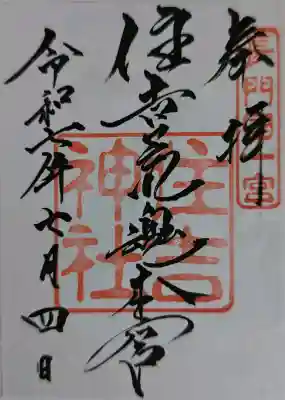 奉拝
長門國一宮
住吉荒魂本宮
住吉神社
令和六年七月四日